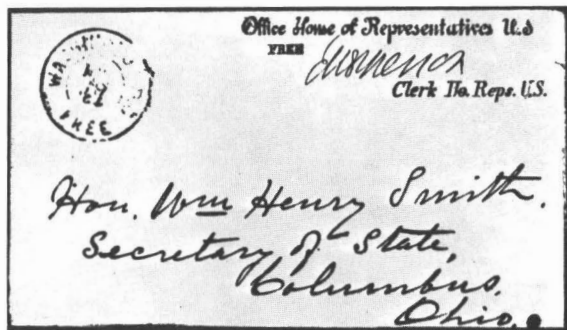 Office House of Representatives U.S
FREE
Clerk Ho. Reps. U.S.
WA
FREE
Hon. Wm Henry Smith.
Secretary of State,
Columbus.
Ohio.